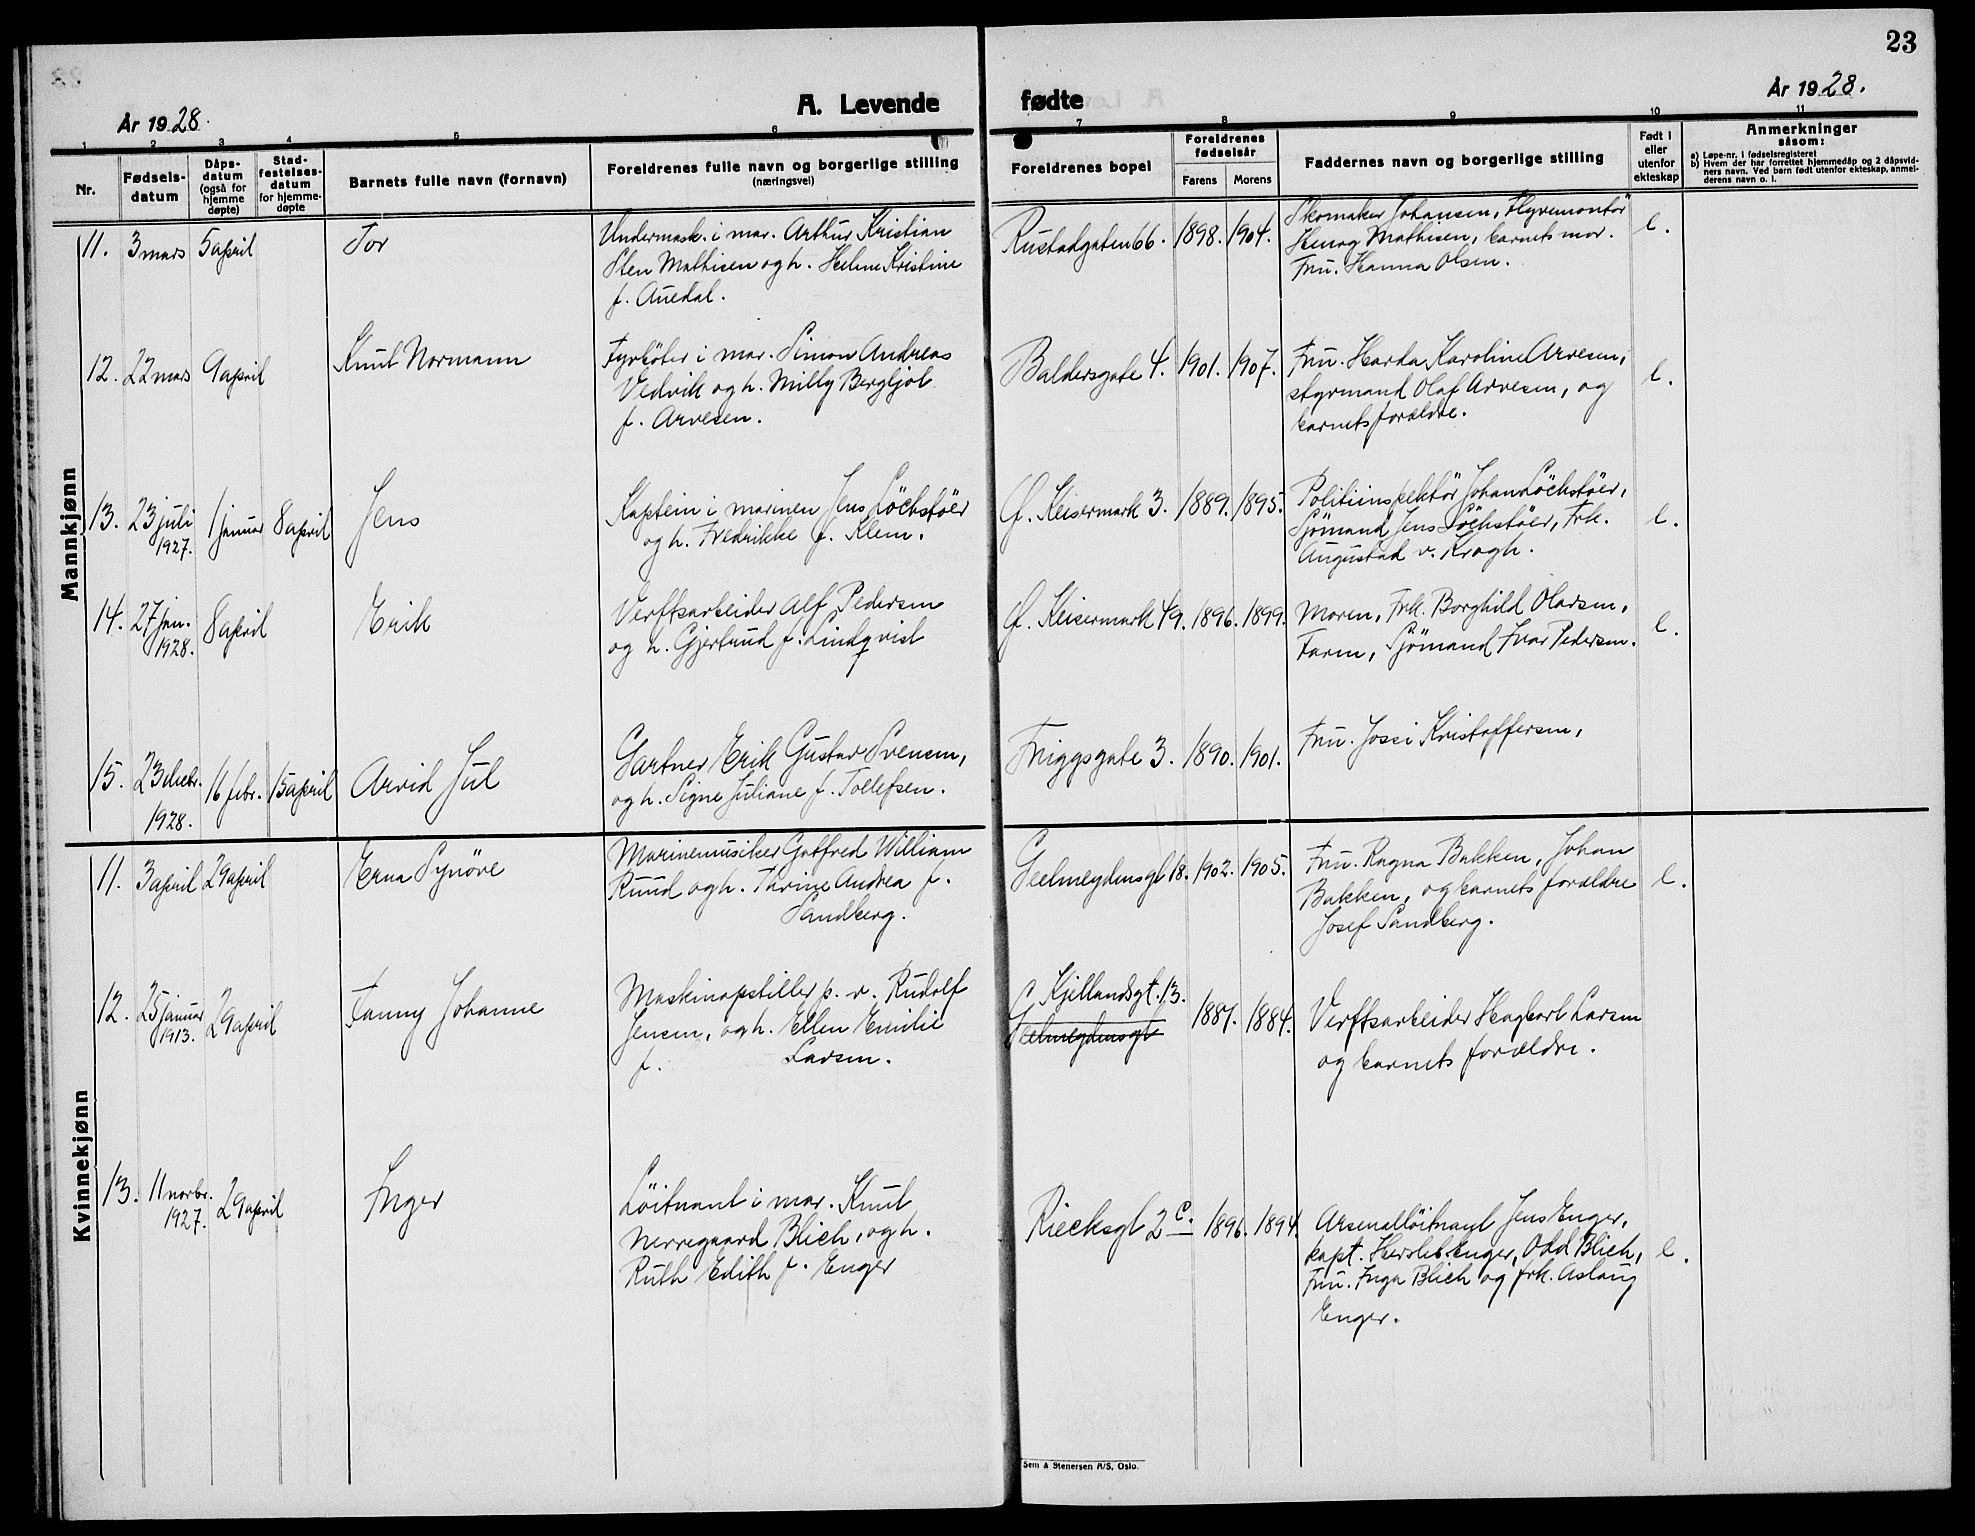 23
År 1928.
A. Levende fødte
År 1928.
1 2 3 4 5 6 7 8 9 10 11
Nr.
Fødsels-
datum
Dåps-
datum
(også for
hjemme
døpte)
Stad-
festelses-
datum
for hjemme-
døpte
Barnets fulle navn (fornavn)
Foreldrenes fulle navn og borgerlige stilling
(næringsvei)
Foreldrenes bopel
Foreldrenes
fødselsår
Farens Morens
Faddernes navn og borgerlige stilling
Født i
eller
utenfor
ekteskap
Anmerkninger
såsom:
a) Løpe-nr. i fødselsregisteret
b) Hvem der har forrettet hjemmedåp og 2 dåpsvid-
ners navn. Ved barn født utenfor ekteskap, anmel-
derens navn o. l.
Mannkjønn
11. 3 mars 5 april Tor
Undermask. i mar. Arthur Kristian
Sten Mathisen og h. Helene Kristine
f. Auedal.
Rustadgaten 66. 1898. 1904.
Skomaker Johansen, Flyvemontör
Mathisen, barnets mor.
Fru. Hanna Olsen.
e.
12. 22 mars 9 april Knut Normann
Fyrböter i mar. Simon Andreas
Vedvik og h. Milly Bergljot
f. Arvesen.
Baldersgate 4. 1901. 1907.
Fru. Karoline Arvesen,
styrmand Olaf Arvesen, og
barnets forældre.
e.
13. 23 juli
1927. 1 januar 8 april Jens
Kaptein i marinen Jens Löchstöer
og h. Fredrikke f. Klem.
Gl. Keisermark 3. 1889. 1895.
Politiinspektör Johan Löchstöer,
Sjömand Jens Löchstöer, Frk.
Augustad v. Krogh.
e.
14. 27 jan.
1928. 8 april Erik
Verftsarbeider Alf Pedersen
og h. Gjertrud f. Lindqvist
Gl. Keisermark 49. 1896. 1899.
Moren, Frk. Borghild Olarsen,
Faren, Sjömand Ivar Pedersen.
e.
15. 23 debr.
1928. 16 febr. 15 april Arvid Jul
Gartner Erik Gustav Svensen,
og h. Signe Juliane f. Tollefsen.
Friggsgate 3. 1890. 1901.
Fru. Jossi Kristoffersen,
Kvinnekjønn
11. 3 april 29 april Erna Synöve
Marinemusiker Gotfred William
Ruud og h. Thrine Andrea f.
Sandberg.
Geelmeydensgt 18. 1902. 1905.
Fru. Ragna Bakken, Johan
Bakken, og barnets forældre
Josef Sandberg.
e.
12. 25 januar
1913. 29 april Fanny Johanne
Maskinopstiller p. v. Rudolf
Jensen, og h. Ellen Emilie
f. Larsen.
Kjellandsgt. 13.
Geelmeydensgt
1887. 1884.
Verftsarbeider Hagbart Larsen
og barnets forældre.
13. 11 novbr.
1927. 29 april Inger
Löitnant i mar. Knut
Nerregaard Blich, og h.
Ruth Edith f. Enger
Riecksgt 2 c. 1896. 1894.
Arsenallöitnant Jens Enger,
kapt. Hersleb Enger, Odd Blich,
Fru. Inga Blich og frk. Aslaug
Enger.
e.
Sem & Stenersen A/S, Oslo.